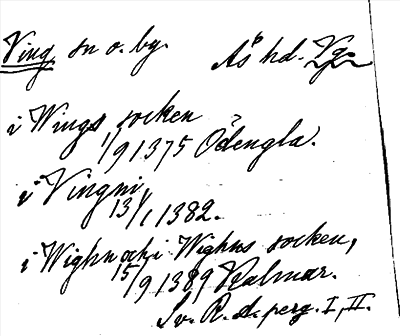 Ving sn o. by. Ås hd. Vg.
i Wings socken
1/9 1375 Ödengla.
i Vingni
13/1 1382.
i Wighn och i Wighns socken,
15/9 1389 Kalmar.
Sv. R. A. perg. I, II.